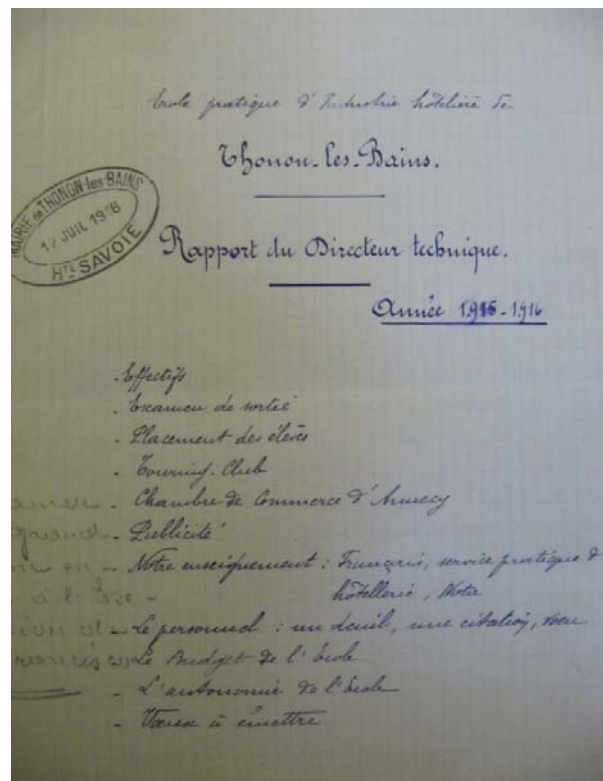 Ecole pratique d'Industrie hôtelière de
Thonon-les-Bains.
MAIRIE de THONON-les-BAINS
12 JUIL 1916
HTE SAVOIE
Rapport du Directeur technique.
Année 1915-1916
- Effectifs
- Examen de sortie
- Placement des élèves
- Touring-Club
- Chambre de Commerce d'Annecy
- Publicité
- Notre enseignement : Français, service pratique d
hôtellerie, Nota
- Le personnel : un deuil, une citation,
- Le Budget de l'Ecole
- L'autonomie de l'Ecole
- Vœux à émettre